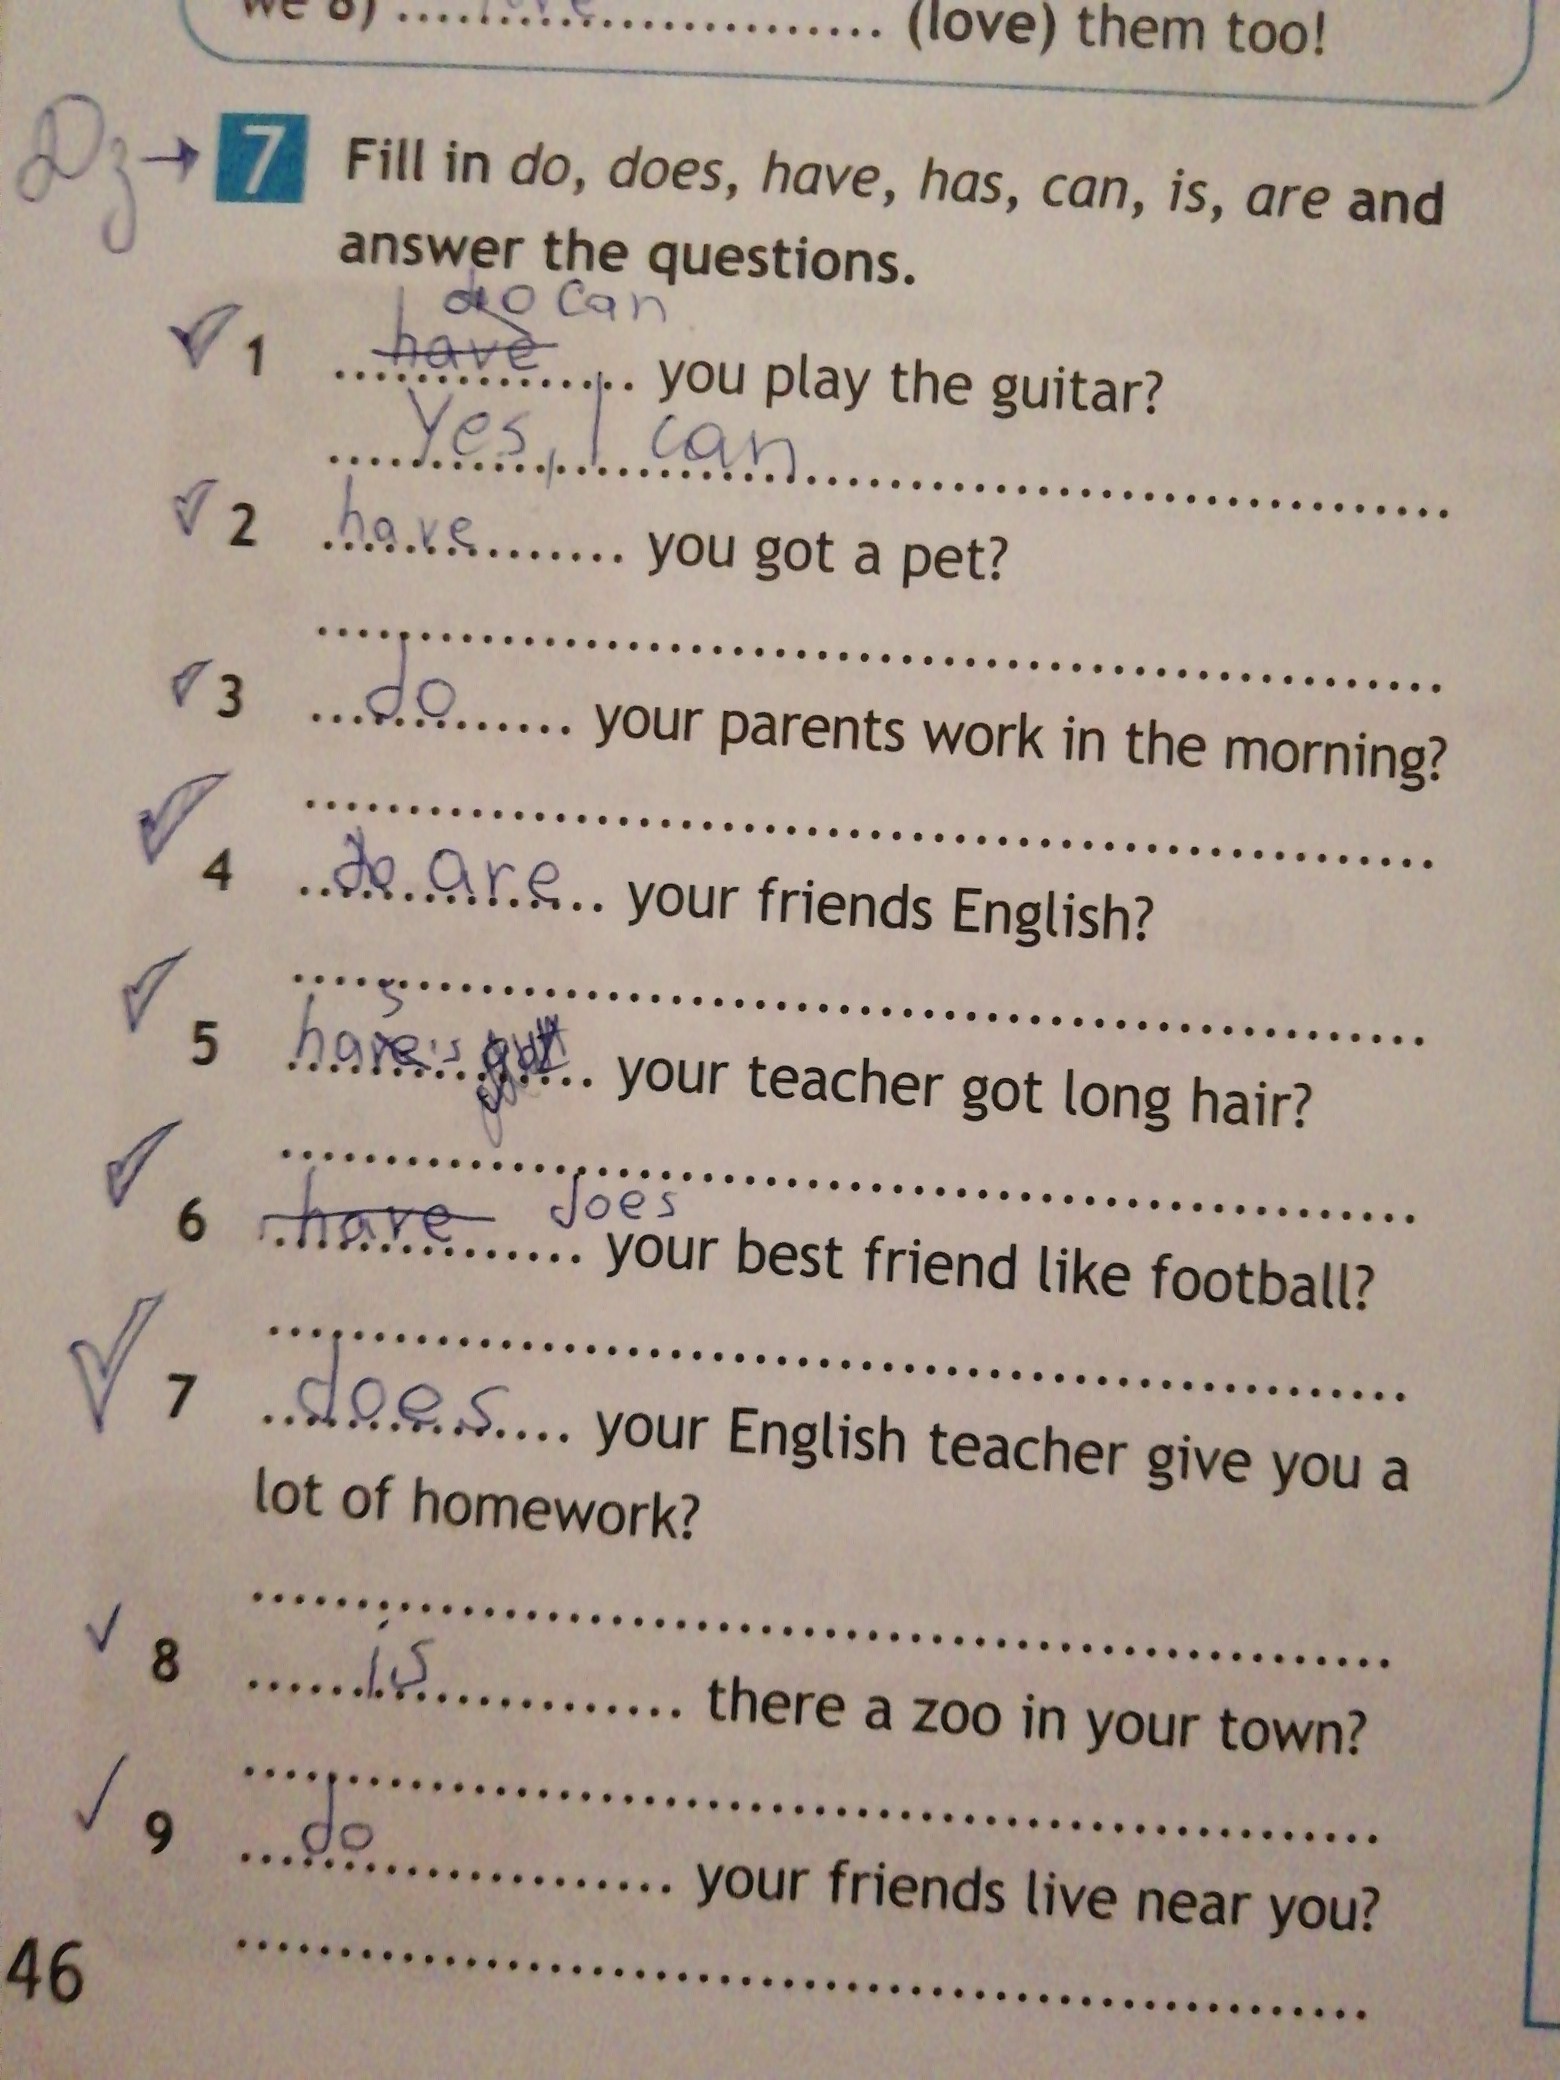 we 8) .............................. (love) them too!
Dz → 7 Fill in do, does, have, has, can, is, are and
answer the questions.
do can
1 have you play the guitar?
Yes, I can
2 have you got a pet?
3 do your parents work in the morning?
4 do are your friends English?
s
5 have's your teacher got long hair?
6 have does your best friend like football?
7 does your English teacher give you a
lot of homework?
8 is there a zoo in your town?
9 do your friends live near you?
46